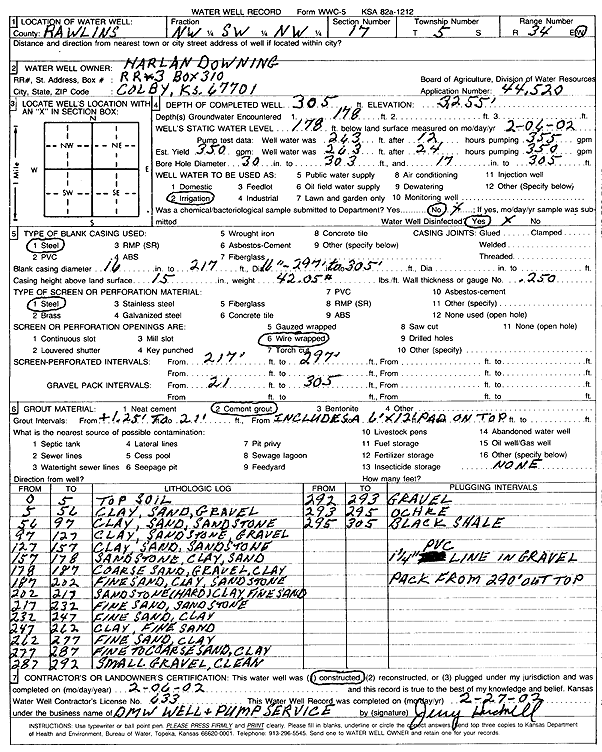 WATER WELL RECORD Form WWC-5 KSA 82a-1212
1 LOCATION OF WATER WELL: Fraction Section Number Township Number Range Number
County: RAWLINS NW ¼ SW ¼ NW ¼ 17 T 5 S R 34 E/W
Distance and direction from nearest town or city street address of well if located within city?
2 WATER WELL OWNER: HARLAN DOWNING
RR#, St. Address, Box # : RR#3 BOX 310 Board of Agriculture, Division of Water Resources
City, State, ZIP Code : COLBY, KS. 67701 Application Number: 44,520
3 LOCATE WELL'S LOCATION WITH AN "X" IN SECTION BOX:
N
NW NE
W E
SW SE
S
1 Mile
4 DEPTH OF COMPLETED WELL 305 ft. ELEVATION: 3255'
Depth(s) Groundwater Encountered 1 178 ft. 2. ft. 3. ft.
WELL'S STATIC WATER LEVEL 178 ft. below land surface measured on mo/day/yr 2-06-02
Pump test data: Well water was 243 ft. after 12 hours pumping 355 gpm
Est. Yield 350 gpm: Well water was 243 ft. after 24 hours pumping 350 gpm
Bore Hole Diameter 30 in. to 303 ft., and 17 in. to 305 ft.
WELL WATER TO BE USED AS: 5 Public water supply 8 Air conditioning 11 Injection well
1 Domestic 3 Feedlot 6 Oil field water supply 9 Dewatering 12 Other (Specify below)
2 Irrigation 4 Industrial 7 Lawn and garden only 10 Monitoring well
Was a chemical/bacteriological sample submitted to Department? Yes No X ; If yes, mo/day/yr sample was submitted
Water Well Disinfected? Yes X No
5 TYPE OF BLANK CASING USED: 5 Wrought iron 8 Concrete tile CASING JOINTS: Glued Clamped
1 Steel 3 RMP (SR) 6 Asbestos-Cement 9 Other (specify below) Welded
2 PVC 4 ABS 7 Fiberglass Threaded
Blank casing diameter 16 in. to 217 ft., Dia 16"-297' to 305' ft., Dia in. to ft.
Casing height above land surface 15 in., weight 42.05# lbs./ft. Wall thickness or gauge No. .250
TYPE OF SCREEN OR PERFORATION MATERIAL: 7 PVC 10 Asbestos-cement
1 Steel 3 Stainless steel 5 Fiberglass 8 RMP (SR) 11 Other (specify)
2 Brass 4 Galvanized steel 6 Concrete tile 9 ABS 12 None used (open hole)
SCREEN OR PERFORATION OPENINGS ARE: 5 Gauzed wrapped 8 Saw cut 11 None (open hole)
1 Continuous slot 3 Mill slot 6 Wire wrapped 9 Drilled holes
2 Louvered shutter 4 Key punched 7 Torch cut 10 Other (specify)
SCREEN-PERFORATED INTERVALS: From 217' ft. to 297' ft., From ft. to ft.
From ft. to ft., From ft. to ft.
GRAVEL PACK INTERVALS: From 21 ft. to 305 ft., From ft. to ft.
From ft. to ft., From ft. to ft.
6 GROUT MATERIAL: 1 Neat cement 2 Cement grout 3 Bentonite 4 Other
Grout Intervals: From +1.25' TO 21' ft., From INCLUDES A 6'X12" PAD ON TOP ft. to ft.
What is the nearest source of possible contamination: 10 Livestock pens 14 Abandoned water well
1 Septic tank 4 Lateral lines 7 Pit privy 11 Fuel storage 15 Oil well/Gas well
2 Sewer lines 5 Cess pool 8 Sewage lagoon 12 Fertilizer storage 16 Other (specify below)
3 Watertight sewer lines 6 Seepage pit 9 Feedyard 13 Insecticide storage NONE
Direction from well? How many feet?
FROM TO LITHOLOGIC LOG FROM TO PLUGGING INTERVALS
0 5 TOP SOIL 292 293 GRAVEL
5 56 CLAY, SAND, GRAVEL 293 295 OCHRE
56 97 CLAY, SAND, SANDSTONE 295 305 BLACK SHALE
97 127 CLAY, SANDSTONE, GRAVEL
127 157 CLAY, SAND, SANDSTONE PVC
157 178 SANDSTONE, CLAY, SAND 1¼" LINE IN GRAVEL
178 187 COARSE SAND, GRAVEL, CLAY
187 202 FINE SAND, CLAY, SANDSTONE PACK FROM 290' OUT TOP
202 217 SANDSTONE (HARD) CLAY, FINE SAND
217 232 FINE SAND, SANDSTONE
232 247 FINE SAND, CLAY
247 262 CLAY, FINE SAND
262 277 FINE SAND, CLAY
277 287 FINE TO COARSE SAND, CLAY
287 292 SMALL GRAVEL, CLEAN
7 CONTRACTOR'S OR LANDOWNER'S CERTIFICATION: This water well was (1) constructed, (2) reconstructed, or (3) plugged under my jurisdiction and was
completed on (mo/day/year) 2-06-02 and this record is true to the best of my knowledge and belief. Kansas
Water Well Contractor's License No. 633 This Water Well Record was completed on (mo/day/yr) 2-27-02
under the business name of DMW WELL + PUMP SERVICE by (signature)
INSTRUCTIONS: Use typewriter or ball point pen. PLEASE PRESS FIRMLY and PRINT clearly. Please fill in blanks, underline or circle the correct answers. Send top three copies to Kansas Department
of Health and Environment, Bureau of Water, Topeka, Kansas 66620-0001. Telephone: 913-296-5545. Send one to WATER WELL OWNER and retain one for your records.